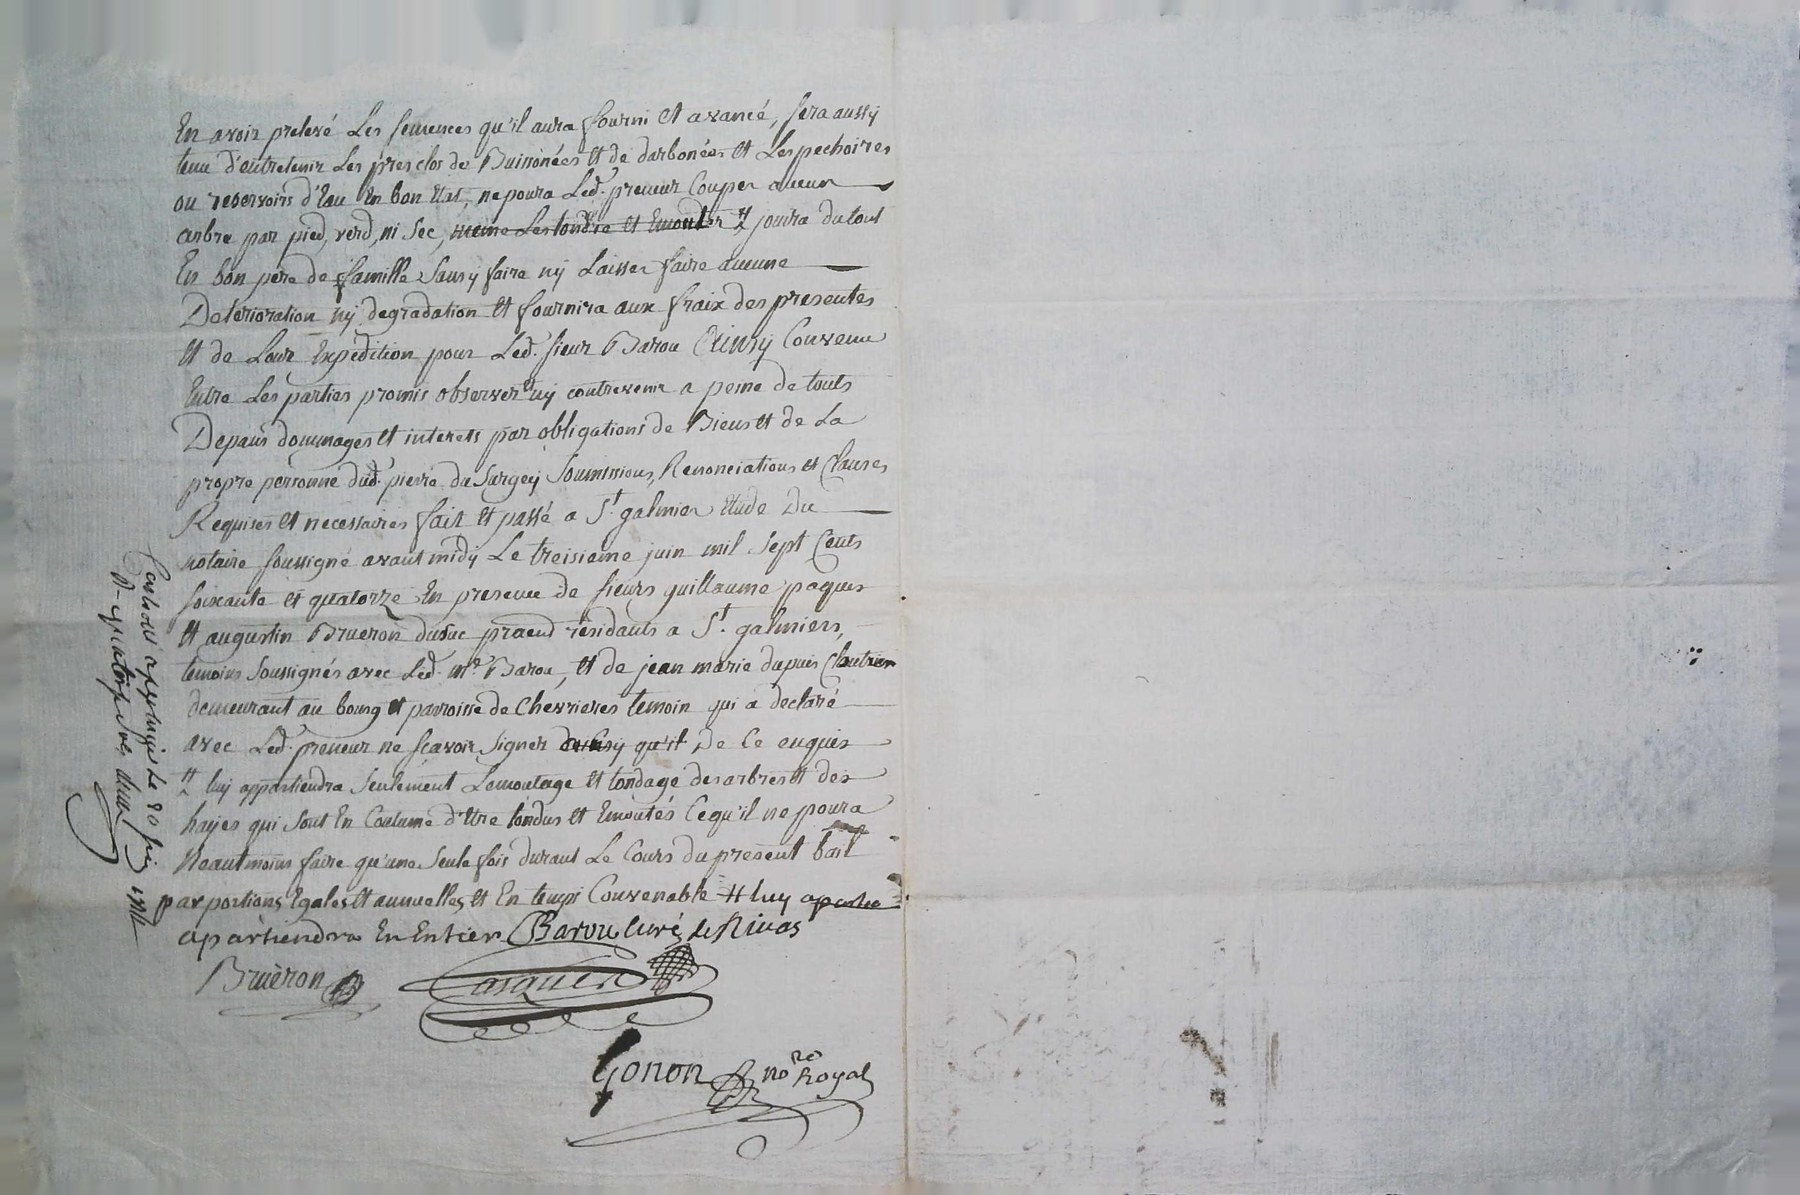 En avoir prelevé Les semences qu'il aura fourni et avancé, sera aussy
tenu d'entretenir Les pres clos de Buissonées et de darbonées et Les pechoires
ou reservoirs d'Eau En bon Etat, ne poura Led. preneur Couper aucun
arbre par pied, verd, ni Sec, meme Les tondre et Emonder # jouira du tout
En bon pere de famille Sans y faire ny Laisser faire aucune
Deterioration ny degradation et fournira aux fraix des presentes
et de Leur Expedition pour Led. sieur Barou Ainsy Convenu
Entre Les parties promis observer et ny contrevenir a peine de touts
Depans dommages et interets par obligations de Biens et de La
propre personne dud. pierre du Surgey Soumissions, Renonciations et Clauses
Requises et necessaires fait et passé a St. galmier Etude Du
notaire soussigné avant midy Le troisieme juin mil Sept Cents
soixante et quatorze En presence de sieurs guillaume paquier
et augustin Brueron dusuc praend residants a St. galmiers,
temoins Soussignés avec Led. Mre Barou, et de jean marie dupuis
demeurant au bourg et parroisse de Chevrieres temoin qui a declaré
avec Led. preneur ne scavoir Signer qu'il De Ce enquis
# luy appartiendra Seulement Lemoutage et tondage des arbres et des
hayes qui Sont En Coutume d'Etre tondus et Emoutés Cequ'il ne poura
Neautmoins faire qu'une Seule fois durant Le Cours du present bail
par portions Egales et annuelles et En temps Convenable # luy apartie
apartiendra En Entier Barou Curé de Rivas
Brueron Pasquier
Gonon nore Royal
Controlé a St galmier Le 20 juin 1774